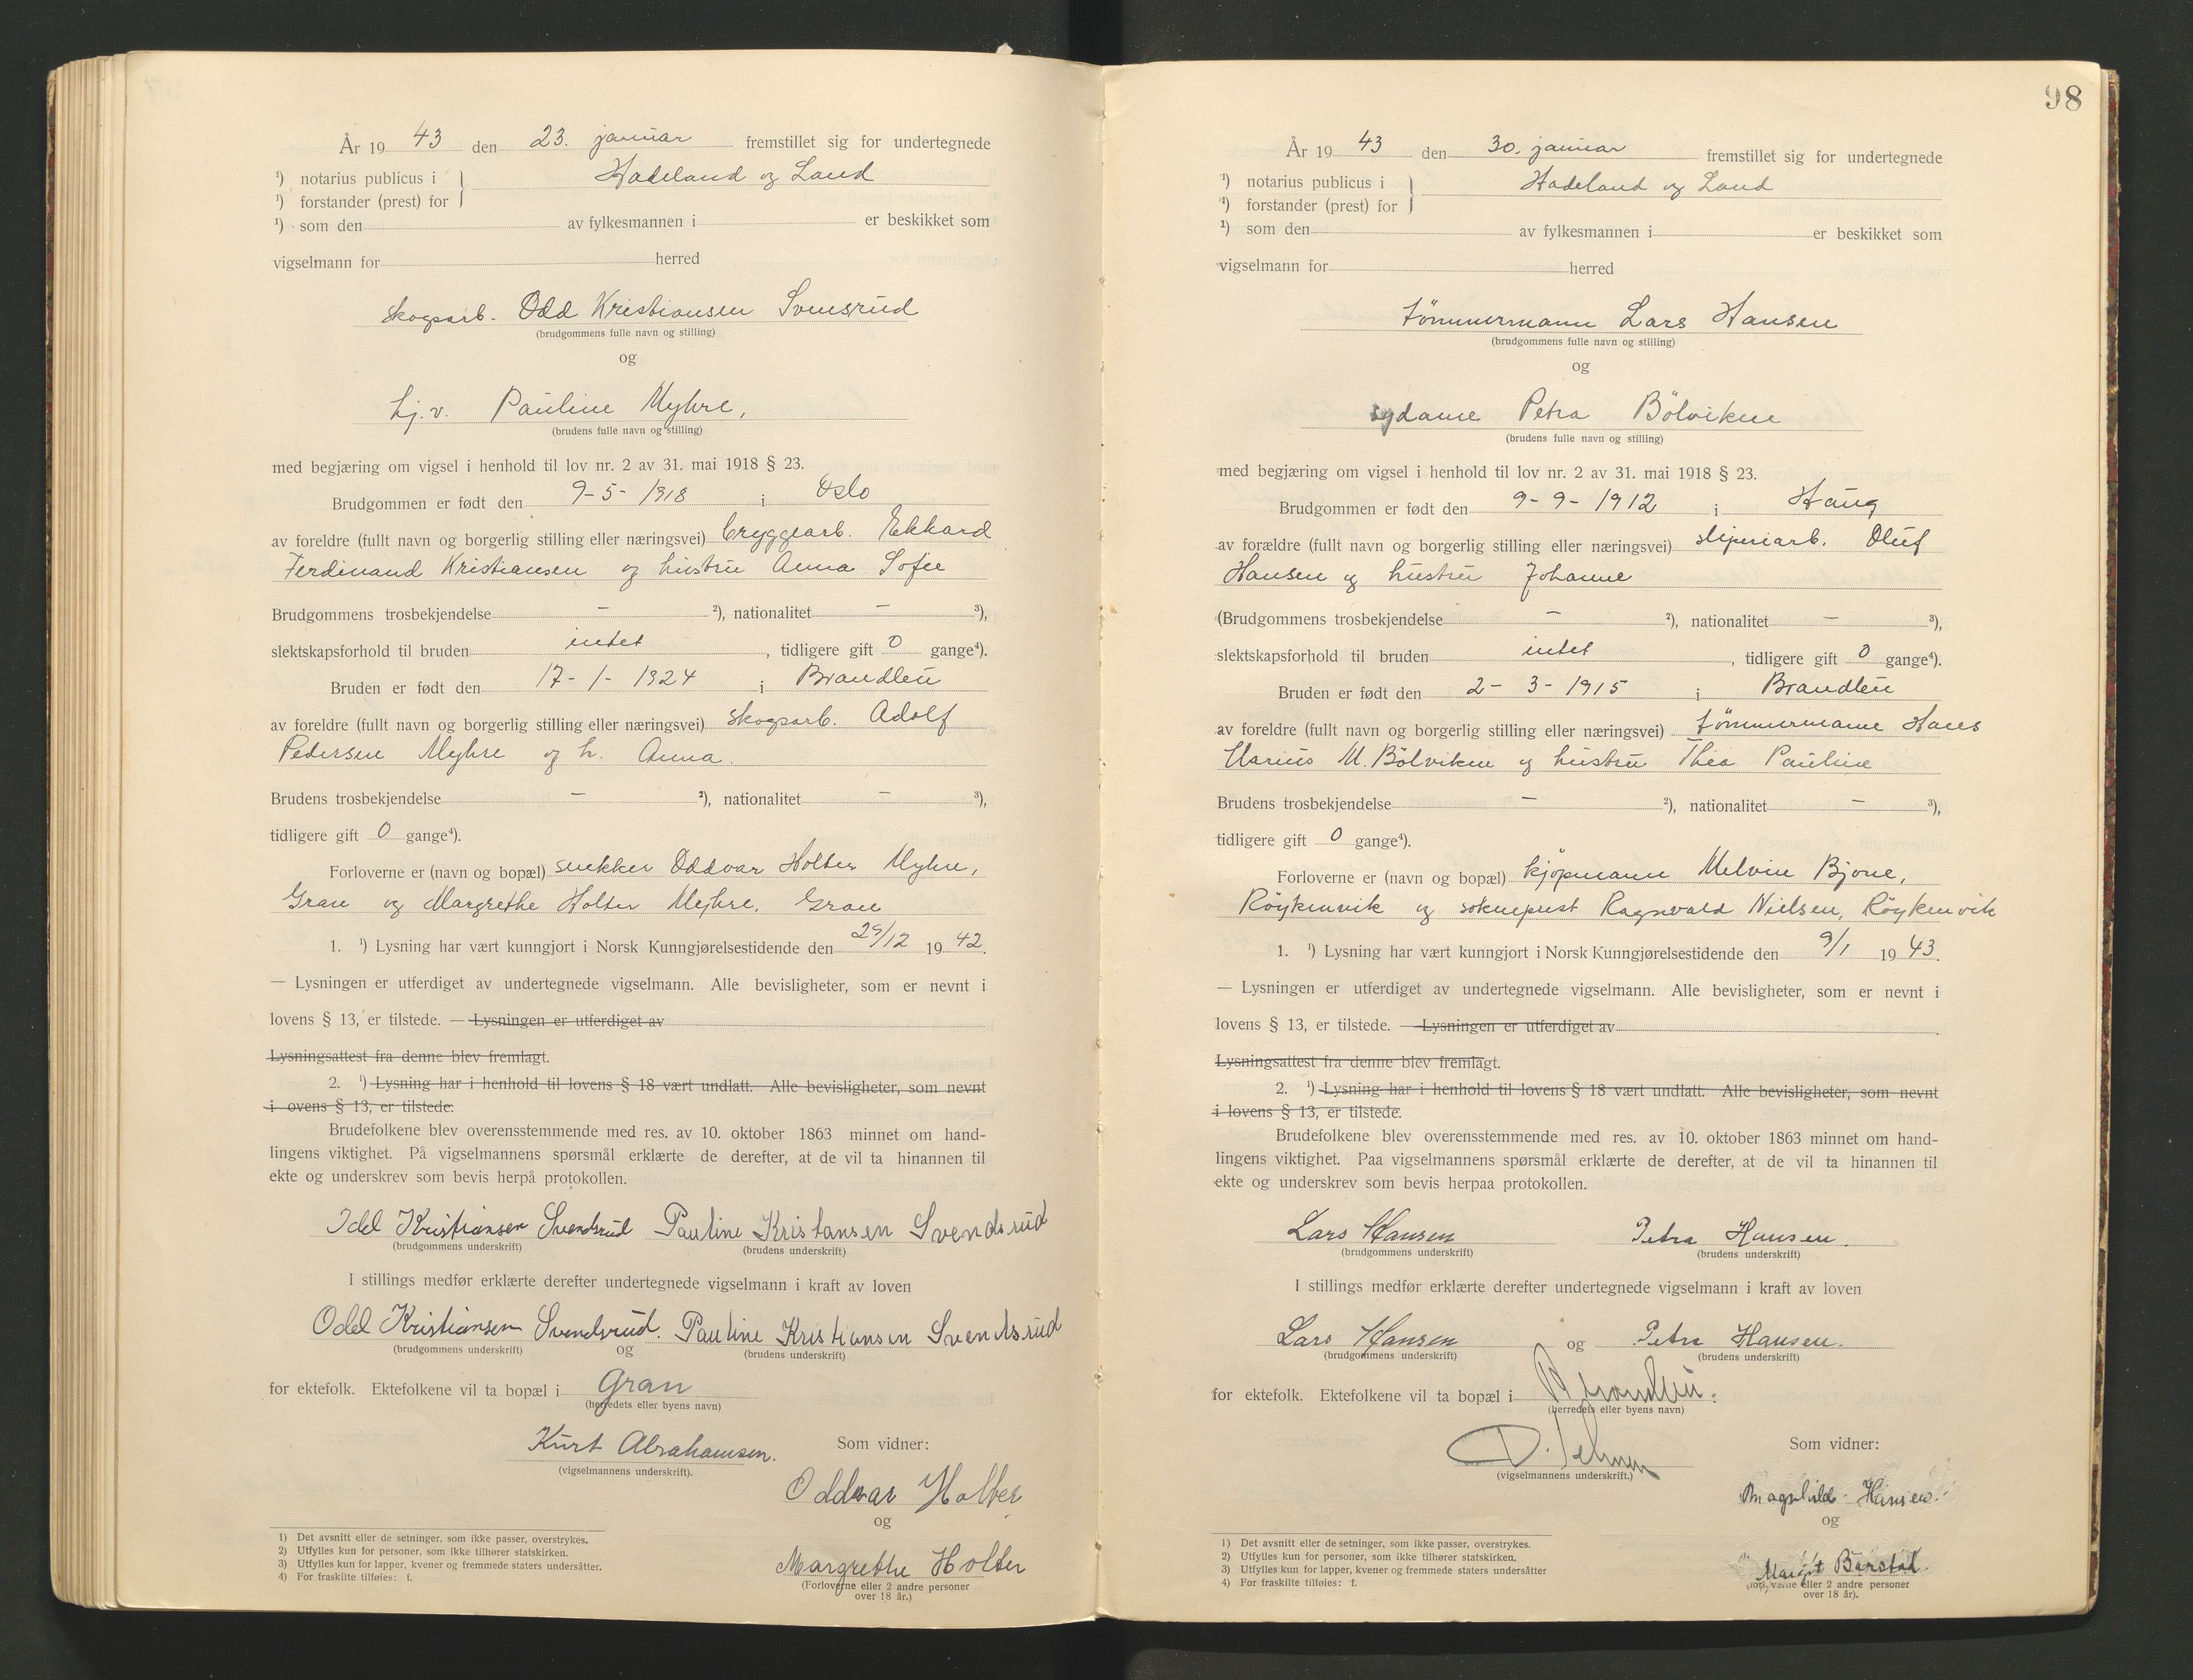 År 19 43 den 23. januar fremstillet sig for undertegnede
¹) notarius publicus i } Hadeland og Land
¹) forstander (prest) for
¹) som den av fylkesmannen i er beskikket som
vigselmann for herred
skogsarb. Odd Kristiansen Svensrud
(brudgommens fulle navn og stilling)
og
hj.v. Pauline Myhre,
(brudens fulle navn og stilling)
med begjæring om vigsel i henhold til lov nr. 2 av 31. mai 1918 § 23.
Brudgommen er født den 9-5-1918 i Oslo
av foreldre (fullt navn og borgerlig stilling eller næringsvei) bryggearb. Ekhard
Ferdinand Kristiansen og hustru Anna Sofie
Brudgommens trosbekjendelse – ²), nationalitet – ³),
slektskapsforhold til bruden intet, tidligere gift 0 gange⁴).
Bruden er født den 17-1-1924 i Brandbu
av foreldre (fullt navn og borgerlig stilling eller næringsvei) skogsarb. Adolf
Pedersen Myhre og h. Anna.
Brudens trosbekjendelse – ²), nationalitet – ³),
tidligere gift 0 gange⁴).
Forloverne er (navn og bopæl) snekker Oddvar Holter Myhre,
Gran og Margrethe Holter Myhre, Gran
1. ¹) Lysning har vært kunngjort i Norsk Kunngjørelsestidende den 29/12 19 42.
— Lysningen er utferdiget av undertegnede vigselmann. Alle bevisligheter, som er nevnt i
lovens § 13, er tilstede. — Lysningen er utferdiget av
Lysningsattest fra denne blev fremlagt.
2. ¹) Lysning har i henhold til lovens § 18 vært undlatt. Alle bevisligheter, som nevnt
i ovens § 13, er tilstede.
Brudefolkene blev overensstemmende med res. av 10. oktober 1863 minnet om hand-
lingens viktighet. På vigselmannens spørsmål erklærte de derefter, at de vil ta hinannen til
ekte og underskrev som bevis herpå protokollen.
Odd Kristiansen Svendsrud Pauline Kristansen Svendsrud
(brudgommens underskrift) (brudens underskrift)
I stillings medfør erklærte derefter undertegnede vigselmann i kraft av loven
Odd Kristiansen Svendsrud. Pauline Kristiansen Svendsrud
(brudgommens underskrift) og (brudens underskrift)
for ektefolk. Ektefolkene vil ta bopæl i Gran
(herredets eller byens navn)
Kurt Abrahamsen. Som vidner:
(vigselmannens underskrift).
Oddvar Holter
og
Margrethe Holter
(Forloverne eller 2 andre personer
over 18 år.)
1) Det avsnitt eller de setninger, som ikke passer, overstrykes.
2) Utfylles kun for personer, som ikke tilhører statskirken.
3) Utfylles kun for lapper, kvener og fremmede staters undersåtter.
4) For fraskilte tilføies: f.
98
År 19 43 den 30. januar fremstillet sig for undertegnede
¹) notarius publicus i } Hadeland og Land
¹) forstander (prest) for
¹) som den av fylkesmannen i er beskikket som
vigselmann for herred
tömmermann Lars Hansen
(brudgommens fulle navn og stilling)
og
sydame Petra Bölviken
(brudens fulle navn og stilling)
med begjæring om vigsel i henhold til lov nr. 2 av 31. mai 1918 § 23.
Brudgommen er født den 9-9-1912 i Haug
av forældre (fullt navn og borgerlig stilling eller næringsvei) sliperiarb. Oluf
Hansen og hustru Johanne
(Brudgommens trosbekjendelse – ²), nationalitet – ³),
slektskapsforhold til bruden intet, tidligere gift 0 gange⁴).
Bruden er født den 2-3-1915 i Brandbu
av foreldre (fullt navn og borgerlig stilling eller næringsvei) tömmermann Hans
Marius M. Bölviken og hustru Thea Pauline
Brudens trosbekjendelse – ²), nationalitet – ³),
tidligere gift 0 gange⁴).
Forloverne er (navn og bopæl) kjöpmann Melvin Bjone,
Röykenvik og sokneprest Ragnvald Nielsen, Röykenvik
1. ¹) Lysning har vært kunngjort i Norsk Kunngjørelsestidende den 9/1 19 43.
— Lysningen er utferdiget av undertegnede vigselmann. Alle bevisligheter, som er nevnt i
lovens § 13, er tilstede. — Lysningen er utferdiget av
Lysningsattest fra denne blev fremlagt.
2. ¹) Lysning har i henhold til lovens § 18 vært undlatt. Alle bevisligheter, som nevnt
i lovens § 13, er tilstede.
Brudefolkene blev overensstemmende med res. av 10. oktober 1863 minnet om hand-
lingens viktighet. Paa vigselmannens spørsmål erklærte de derefter, at de vil ta hinannen til
ekte og underskrev som bevis herpaa protokollen.
Lars Hansen Petra Hansen.
(brudgommens underskrift) (brudens underskrift)
I stillings medfør erklærte derefter undertegnede vigselmann i kraft av loven
Lars Hansen og Petra Hansen.
(brudgommens underskrift) (brudens underskrift)
for ektefolk. Ektefolkene vil ta bopæl i Brandbu.
(herredets eller byens navn)
Som vidner:
(vigselmannens underskrift.)
Magnhild Hansen.
og
Margit Barstad.
(forloverne eller 2 andre personer
over 18 år).
1) Det avsnitt eller de setninger, som ikke passer, overstrykes.
2) Utfylles kun for personer, som ikke tilhører statskirken.
3) Utfylles kun for lapper, kvener og fremmede staters undersåtter
4) For fraskilte tilføies: f.